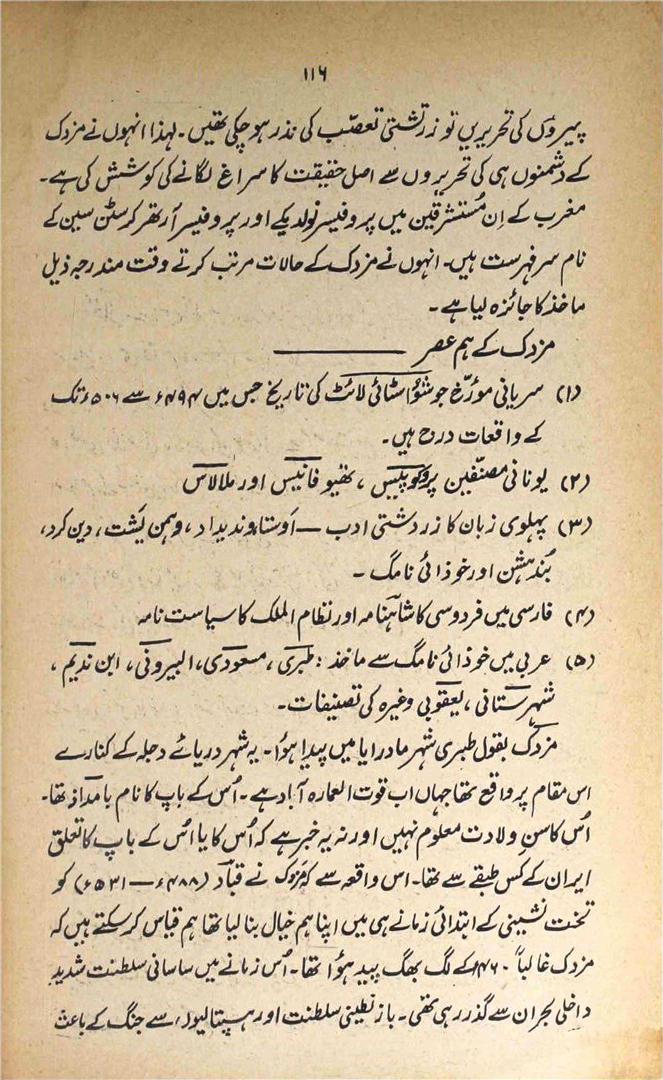 ۱۱۶
پیروں کی تحریریں تو زرتشتی تعصّب کی نذر ہو چکی تھیں۔ لہذا انہوں نے مزدک
کے دشمنوں ہی کی تحریروں سے اصل حقیقت کا سراغ لگانے کی کوشش کی ہے۔
مغرب کے اِن مُستشرقین میں پروفیسر نولدیکے اور پروفیسر آرتھر کرسٹن سین کے
نام سرِ فہرست ہیں۔ انہوں نے مزدک کے حالات مرتب کرتے وقت مندرجہ ذیل
ماخذ کا جائزہ لیا ہے۔
مزدک کے ہم عصر ———
(۱) سریانی مورّخ جوشؤا سٹائی لائٹ کی تاریخ جس میں ۴۹۴ء سے ۵۰۶ء تک
کے واقعات درج ہیں۔
(۲) یونانی مصنّفین پروکوپیس، تھیوفانیس اور ملالاس
(۳) پہلوی زبان کا زردشتی ادب — اَوستا، وندیداد، وہمن یَشت، دین کرد،
بُندہشن اور خوذائی نامگ۔
(۴) فارسی میں فردوسی کا شاہنامہ اور نظام الملک کا سیاست نامہ
(۵) عربی میں خوذائی نامگ سے ماخذ: طبری، مسعودی، البیرونی، ابن ندیم،
شہرستانی، یعقوبی وغیرہ کی تصنیفات۔
مزدک بقول طبری شہر مادرایا میں پیدا ہوُا۔ یہ شہر دریائے دجلہ کے کنارے
اس مقام پر واقع تھا جہاں اب قوت العمارہ آباد ہے۔ اُس کے باپ کا نام بامداذ تھا۔
اُس کا سنِ ولادت معلوم نہیں اور نہ یہ خبر ہے کہ اُس کا یا اُس کے باپ کا تعلق
ایران کے کس طبقے سے تھا۔ اس واقعہ سے کہ مزدک نے قباد (۴۸۸ء — ۵۳۱ء) کو
تخت نشینی کے ابتدائی زمانے ہی میں اپنا ہم خیال بنا لیا تھا ہم قیاس کر سکتے ہیں کہ
مزدک غالباً ۴۶۰ء کے لگ بھگ پیدا ہوُا تھا۔ اُس زمانے میں ساسانی سلطنت شدید
داخلی بحران سے گذر رہی تھی۔ بازنطینی سلطنت اور ہپتالیوں سے جنگ کے باعث